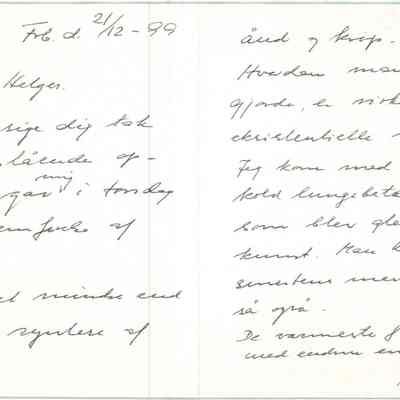 Frb. d. 21/12 - 99
Helges.
sige dig tak
låænde op-
mig
gav i torsdag
af
mindre end
syntese af
ånd og krop.
Hvordan man
gjorde, er virk
eksistentielle
Jeg kom med
kold lungebetæ
som blev gle
kunst. Man k
smertens mer
så også.
De varmeste
med endnu en